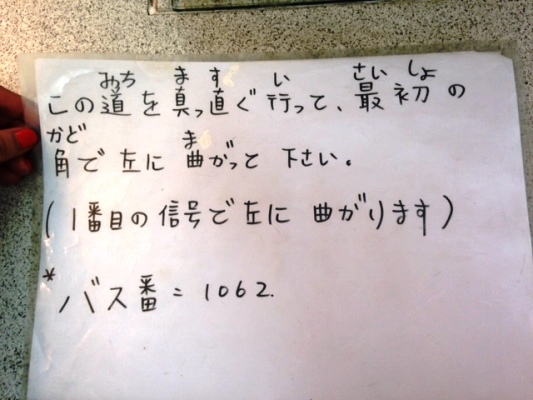 みち ま す い さい しょ
この道を真っ直ぐ行って、最初の
かど ま
角で左に曲がっと下さい。
(1番目の信号で左に曲がります)
*バス番=1062.